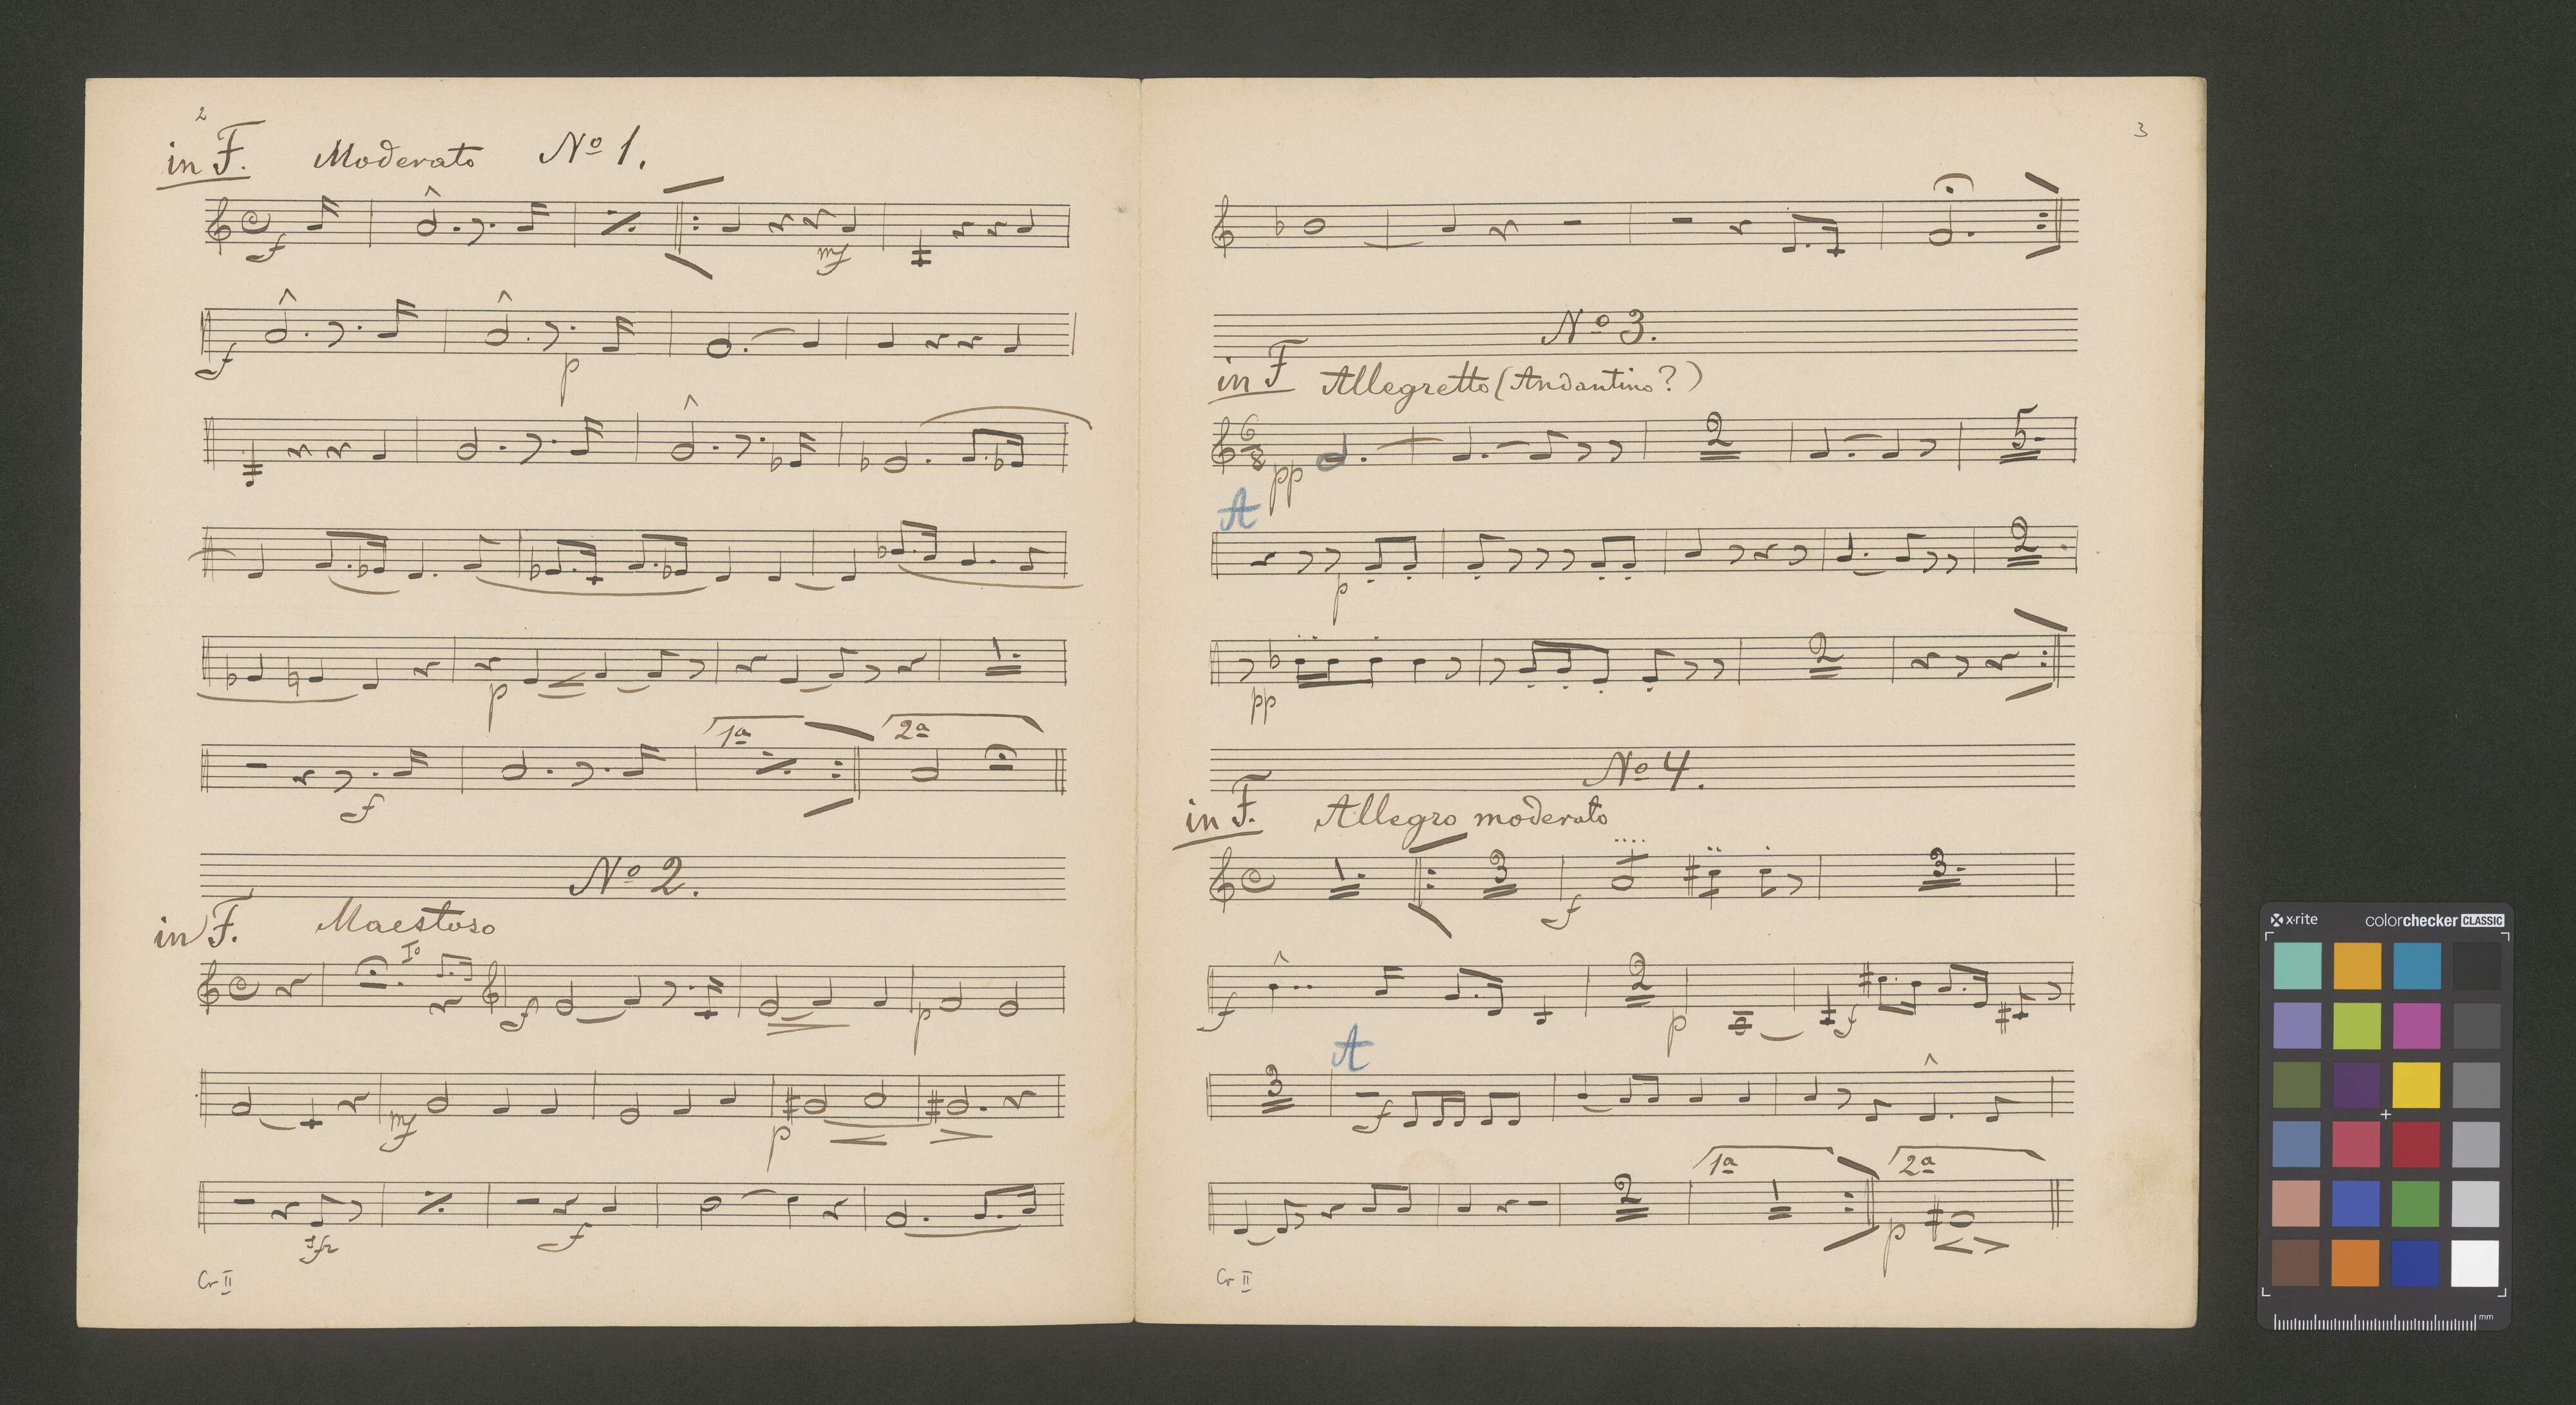 2
in F. Moderato Nº 1.
f
mf
f
p
p
f
1ª 2ª
Nº 2.
in F. Maestoso
Iº
f
p
mf
p
sfz
f
Cr II
3
Nº 3.
in F Allegretto (Andantino?)
6 8
2
5
pp
A
2
p
2
pp
Nº 4.
in F. Allegro moderato
1 3 3
f
2
f p f
A
3
f
1ª 2ª
2 1
p
Cr II
x-rite colorchecker CLASSIC
mm